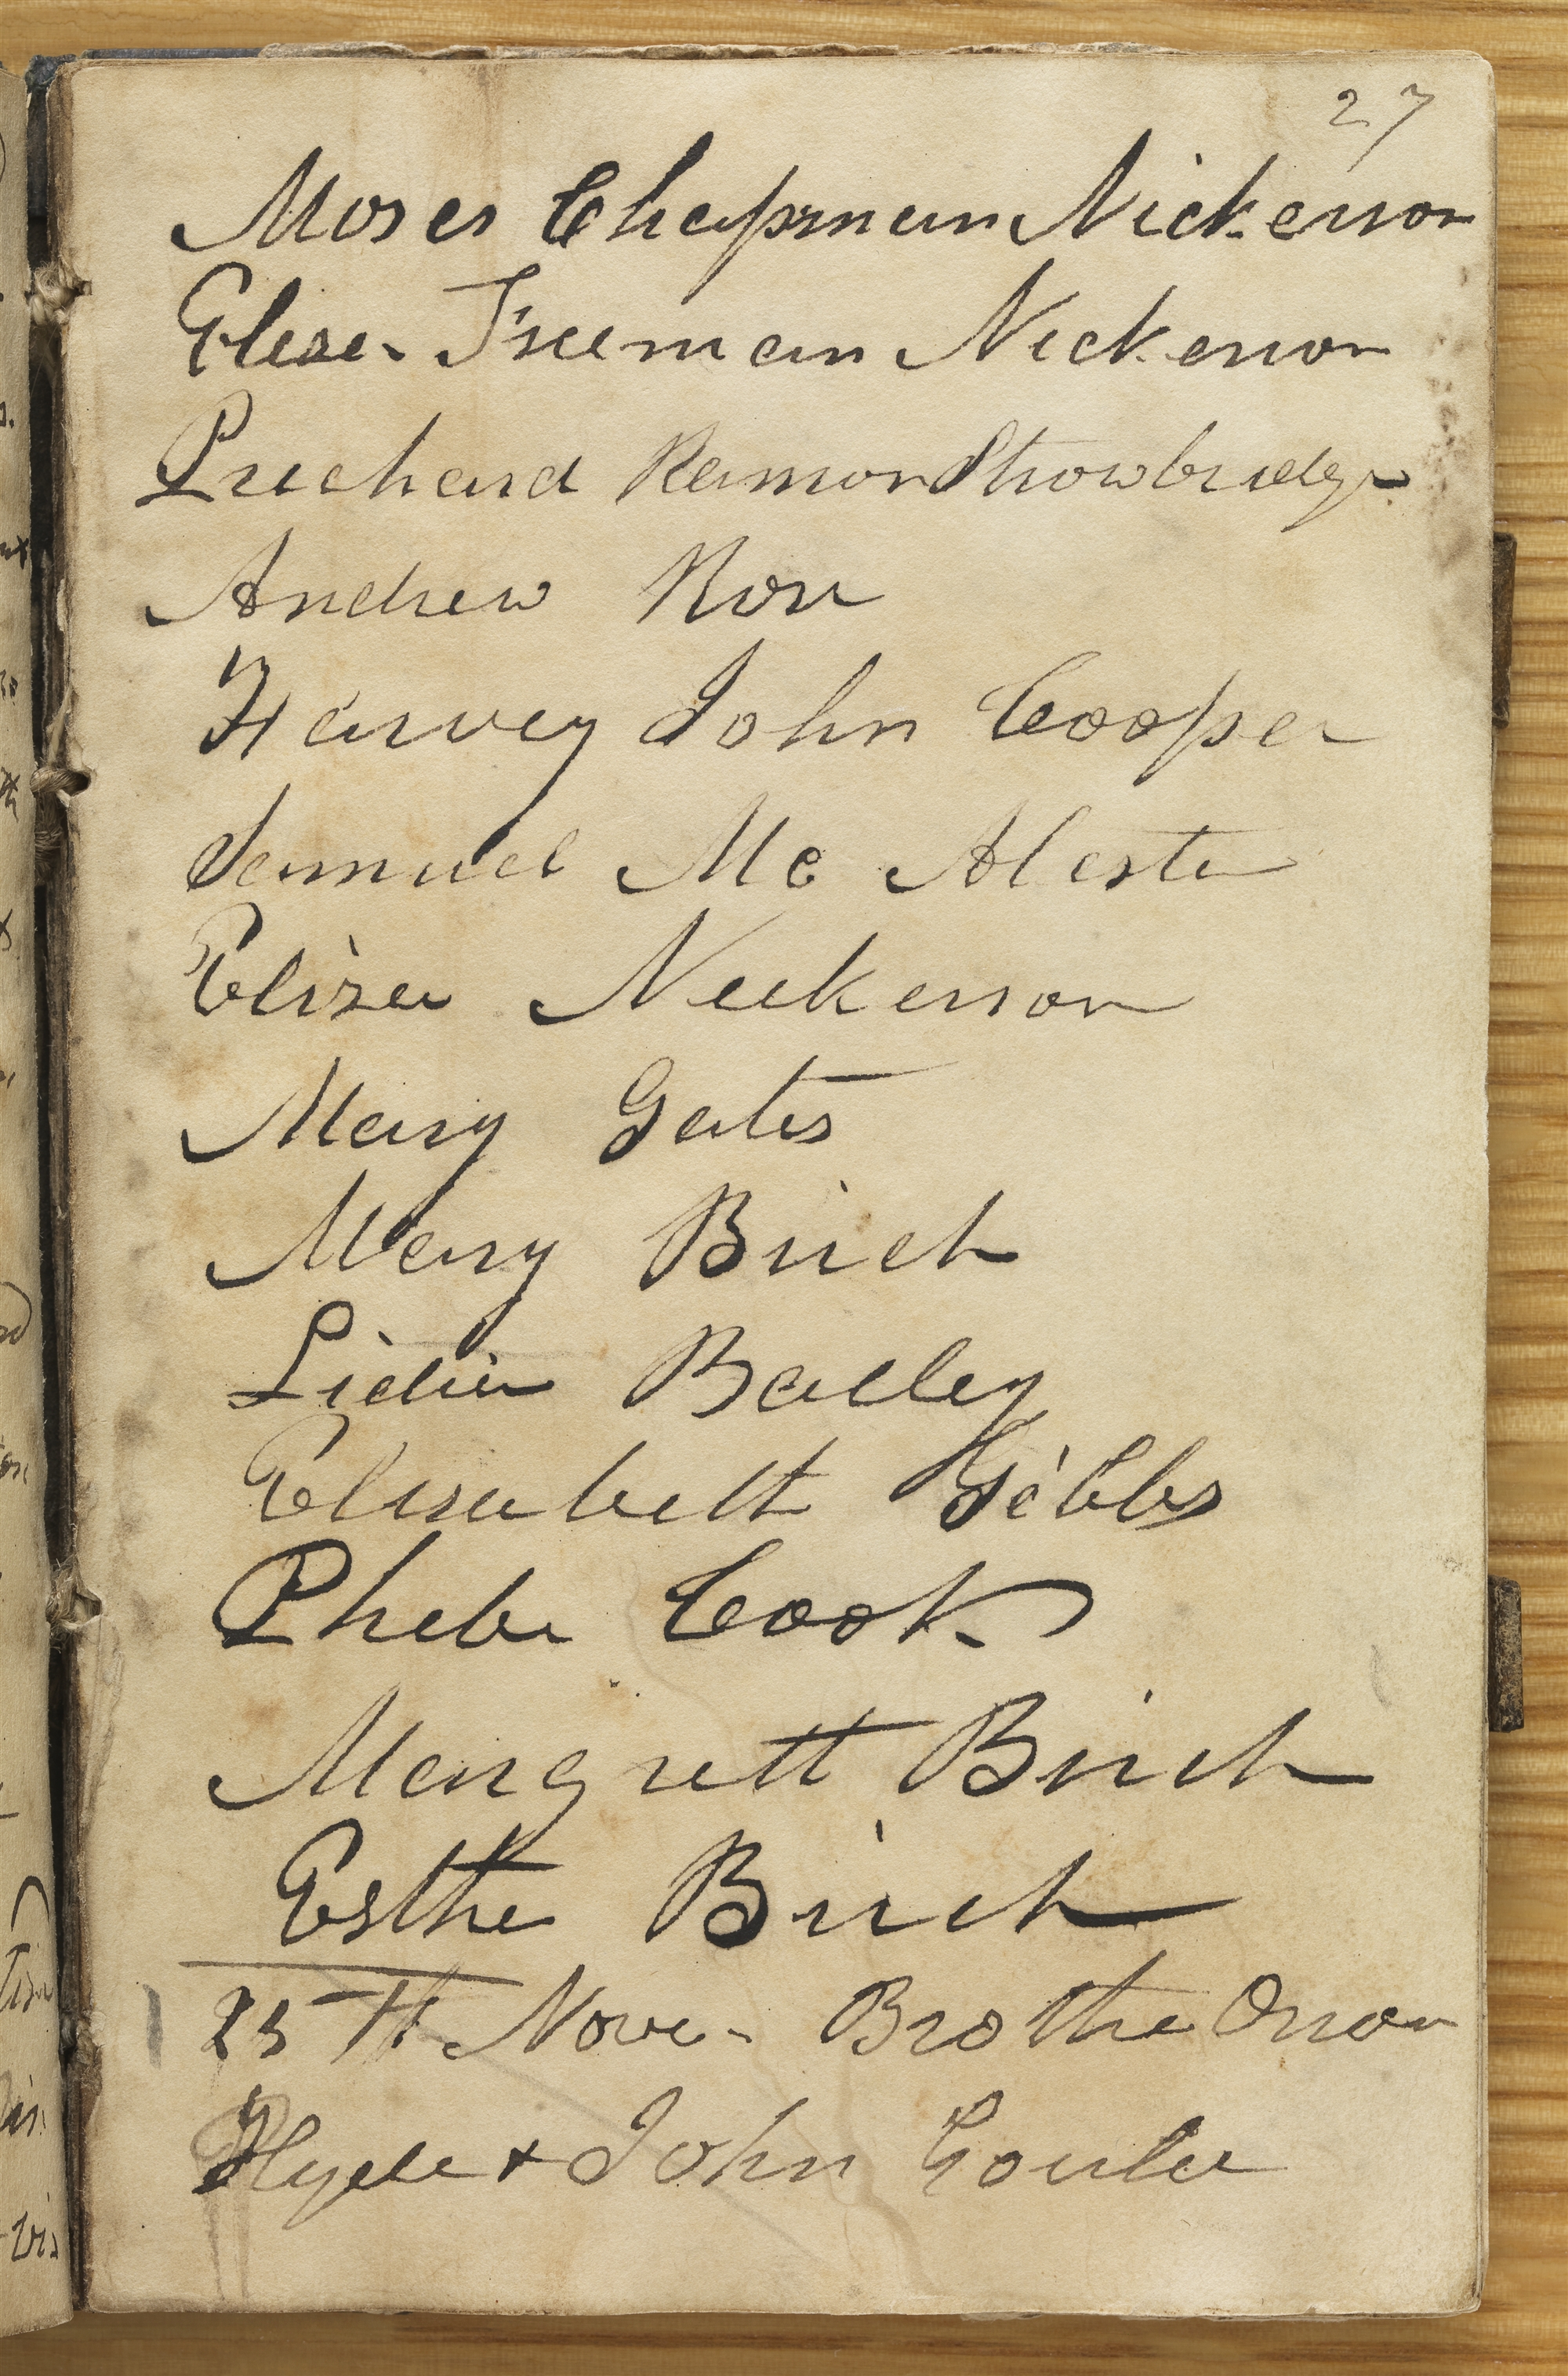 27
Moses Chapman Nickerson
Eleser Freeman Nickerson
Prichard Ramon Strowbridge
Andrew Rose
Harvey John Cooper
Samuel Mc Alester
Eliza Nickerson
Mary Gates
Mary Birch
Lidia Bailey
Elisabeth Gibbs
Phebe Cook
Margrett Birch
Esther Birch
25th Nove. Brother Orson
Hyde & John